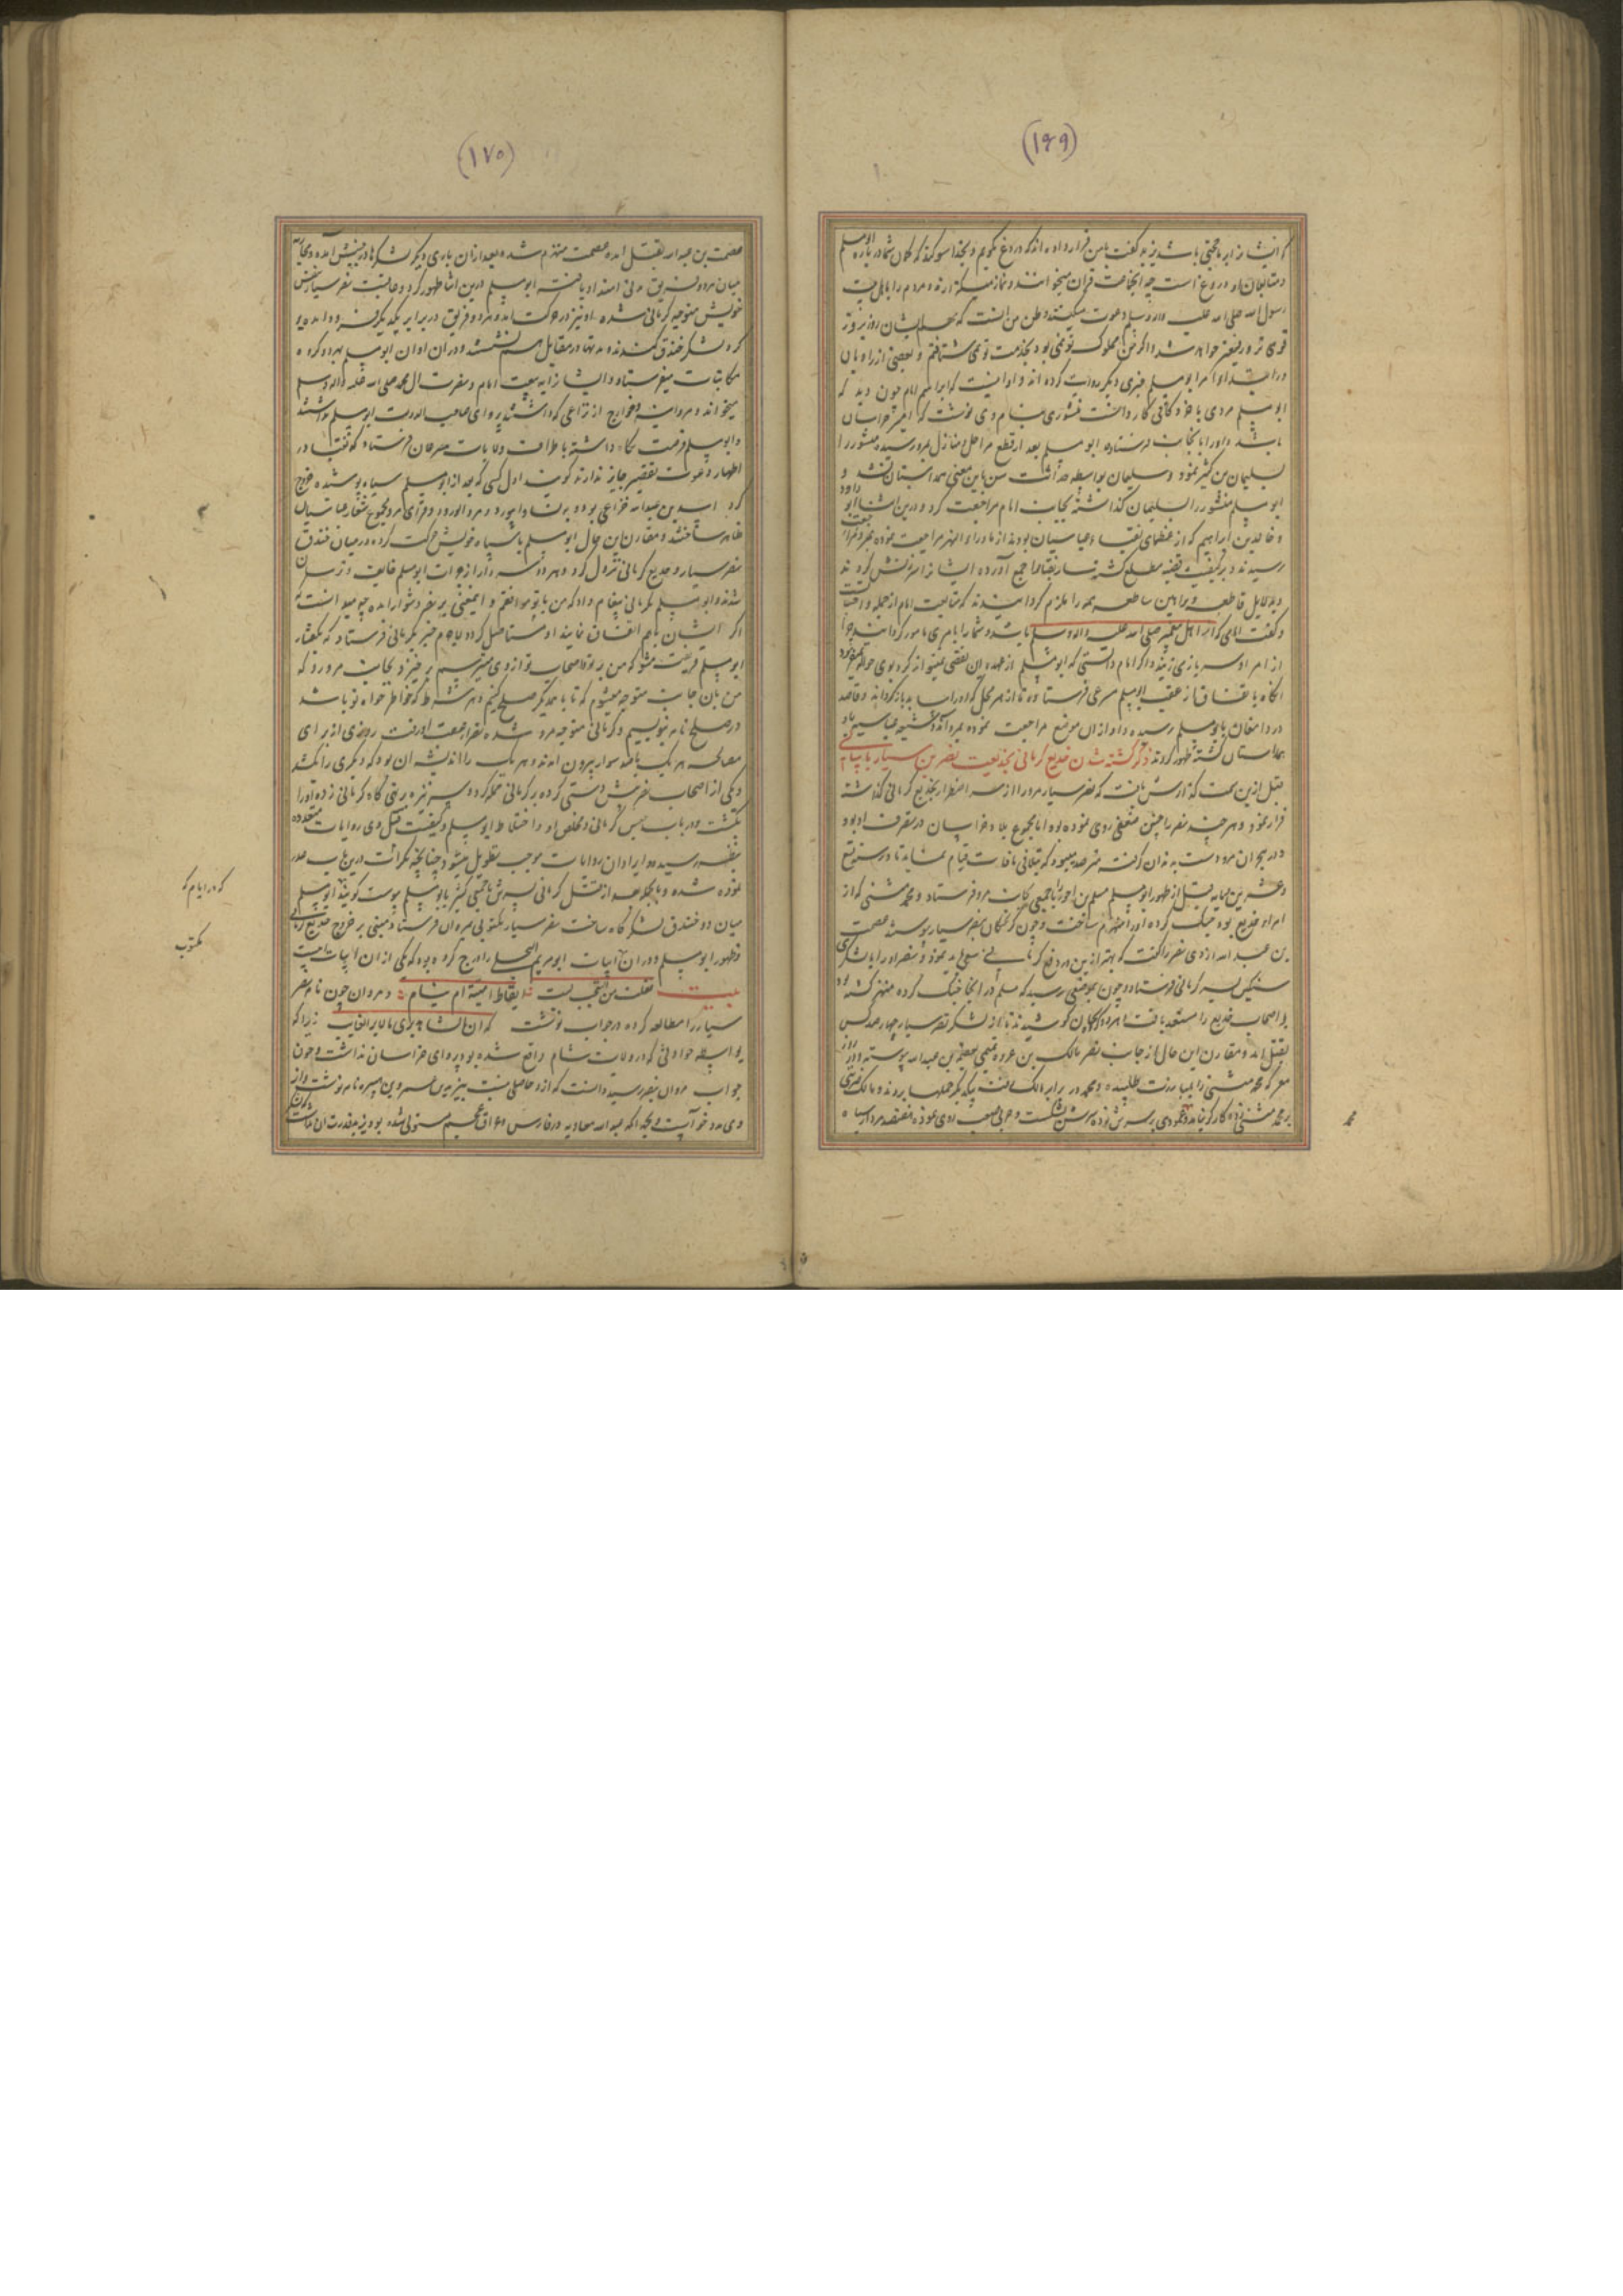 (۱۶۹)
که ایشان را بر ما حجتی باشد یزید گفت با من قرار داده اند که دروغ نگویم و بخدا سوگند که گمان شما در باره ابومسلم
و متابعان او دروغ است چه انجماعت قران میخوانند و نماز میگزارند و مردم را باهل بیت
رسول الله صلی الله علیه واله وسلم دعوت میکنند و ظن من آنست که مهم ایشان روز بروز
قوی تر و رفیع تر خواهد شد و اگر نه من مملوک تو می بودم بخدمت تو نمی شتافتم و بعضی از راویان
در ابتداء امر ابومسلم خبری دیگر روایت کرده اند و اوانست که ابراهیم امام چون دید که
ابومسلم مردی با خرد و کافی کار دانست منشوری بنام وی نوشت که امیر خراسان
باشد و او را بانجانب فرستاد و ابومسلم بعد از قطع مراحل و منازل بمرو رسید و منشور را
بسلیمان بن کثیر نمود و سلیمان بواسطه حداثت سن باین معنی همداستان نشد و
ابومسلم منشور را بسلیمان گذاشته بجانب امام مراجعت کرد و درین اثنا ابو داود
و خالد بن ابراهیم که از عظمای نقباء عباسیان بودند از ماوراء النهر مراجعت نموده بمرو
رسیدند و بر کیفیت قضیه مطلع گشته نقبا را جمع آورده ایشان را سرزنش کردند
و بدلایل قاطعه و براهین ساطعه همه را ملزم گردانیدند که متابعت امام از جمله واجبات
و گفت امامی که از اهل پیغمبر صلی الله علیه واله وسلم باشد و شما را بامری مامور گرداند چرا
از امر او سر باز می زنید و اگر امام دانستی که ابومسلم از عهده ان تفصی نمیتواند کرد بوی حواله نمیفرمود
انگاه باتفاق از عقب ابومسلم مسرعی فرستادند تا از هر محل که او را بیابد باز گرداند و قاصد
در دامغان بابومسلم رسیده و او از ان موضع مراجعت نموده بمرو آمد و شیعه عباسیه با او
همداستان گشته ظهور کردند ذکر کشته شدن خدیع کرمانی بخدیعت نصر بن سیار با
قبل ازین سمت گذارش یافت که نصر سیار مرو را از سر اضطرار بخدیع کرمانی گذاشته
فرار نمود و هر چند نصر را چنین ضعفی روی نموده بود اما مجموع بلاد خراسان در تصرف او بود
و در هجران مرو دست بدندان گرفته مترصد میبود که بتلافی مافات قیام نماید تا در سنه تسع
و عشرین و مایه قبل از ظهور ابومسلم سلم بن احوز را با جمعی بجانب مرو فرستاد و محمد مثنی که از
امراء خدیع بود جنگ کرده او را منهزم ساخت و چون گریختگان بنصر سیار پیوستند عصمت
بن عبدالله ازدی نصر را گفت
سنگین بسر کرمانی فرستاد و چون بموضعی رسید که سلم در آنجا جنگ کرده منهزم گشته بود
و اصحاب خدیع را مستعد یافت هر دو گروه بجان کوشیدند تا از لشکر نصر سیار چهارصد کس
بقتل امد و مقارن این حال از جانب نصر مالک بن عروه تمیمی بعصمت بن عبدالله پیوسته و در آن
معرکه محمد مثنی را بمبارزت طلبیده و محمد در برابر مالک رفت یکدیگر حملها بردند و مالک ضربتی
بر محمد مثنی زده کارگر نیامد و محمد عمودی بر سرش زده سرش بشکست و حربی صعب روی نمود
محمد
(۱۷۰)
عصمت بن عبدالله بقتل امد و عصمت منهزم شده بعد از ان باری دیگر لشکرها در جنبش امده و محاربه
میان هر دو فریق مدتی امتداد یافت و ابومسلم درین اثنا ظهور کرد و عاقبت نصر سیار بنفس
خویش متوجه کرمانی شده و او نیز در حرکت امد و هر دو فریق در برابر یکدیگر فرود امده و
گرد لشکر خندق کندند و مدتها در مقابل هم نشستند و در ان اوان ابومسلم بهر دو گروه
مکاتبات میفرستاد و ایشان را به بیعت امام و نصرت ال محمد صلی الله علیه واله وسلم
میخواند و مروانیه و خوارج از نزاعی که داشتند پروای صاحب الدعوت ابومسلم نداشتند
و ابومسلم فرصت نگاه داشته باطراف ولایات مسرعان فرستاد که نقبا در
اظهار دعوت تقصیر جایز ندارند گویند اول کسی که بعد از ابومسلم سیاه پوشیده خروج
کرد اسید بن عبدالله خزاعی بود و به نسا و ابیورد و مرو الرود و قرای مرو مجموع شعار عباسیان
ظاهر ساختند و مقارن این حال ابومسلم با سپاه خویش حرکت کرده در میان خندق
نصر سیار و خدیع کرمانی نزول کرد و هر دو سردار از جرات ابومسلم خایف و ترسان
شدند و ابومسلم بکرمانی پیغام داد که من با تو موافقم و اینمعنی بر نصر دشوار امده چه میدانست که
اگر ایشان باهم اتفاق نمایند او مستاصل گردد لاجرم خبر بکرمانی فرستاد که بگفتار
ابومسلم فریفته مشو که من بر تو و اصحاب تو از وی میترسم برخیز و بجانب مرو رو که
من بان جانب متوجه میشوم که تا با همدیگر صلح کنیم و بهر شرط که خواطر خواه تو باشد
در صلح نامه بنویسیم و کرمانی متوجه مرو شده نصر از عقب او رفت و روزی از برای
مصالحه هر یک با صد سوار بیرون امدند و هر یک را اندیشه ان بود که دیگری را بکشد
و یکی از اصحاب نصر پیش دستی کرده بر کرمانی حمله کرد و سر نیزه بر تهی گاه کرمانی زده او را
بکشت و در باب حبس کرمانی و تخلص او و اختلاط ابومسلم و کیفیت قتل وی روایات متعدده
بنظر رسیده و ایراد ان روایات موجب تطویل میشود چنانچه بکرات درین باب عذر
نموده شده و بالجمله بعد از قتل کرمانی پسرش با جمعی کثیر بابومسلم پیوست گویند ابومسلم
میان دو خندق لشکرگاه ساخت نصر سیار مکتوبی بمروان فرستاد مبنی بر خروج خدیع کرمانی
و ظهور ابومسلم و در ان ابیات ابومریم البجلی را درج کرده بود که یکی از ان ابیات اینست
بیت فقلت من التعجب لیت شعری ایقاظ امیة ام نیام و مروان چون نامه نصر
سیار را مطالعه کرده در جواب نوشت که ان الشاهد یری مالا یری الغایب زیرا که
بواسطه حوادثی که در ولایت شام واقع شده بود پروای خراسان نداشت و چون
جواب مروان بنصر رسید دانست که از و حاصلی نیست بیزید بن عمر بن هبیره نامه نوشت و از
وی مدد خواست و بجهة انکه عبدالله معاویه در فارس و عراق عجم مستولی شده بود
که در ایام که
مکتوب